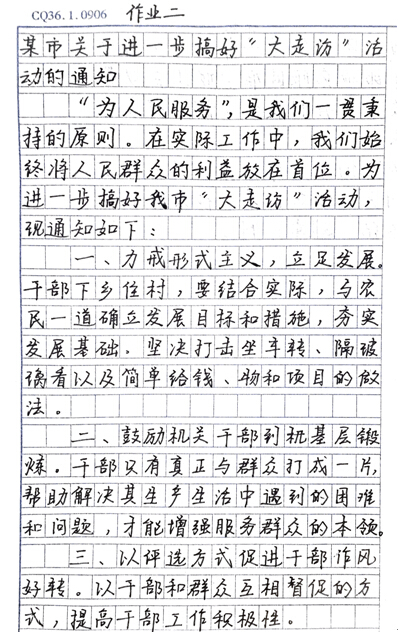 CQ36.1.0906 作业二
某市关于进一步搞好“大走访”活
动的通知
“为人民服务”，是我们一贯秉
持的原则。在实际工作中，我们始
终将人民群众的利益放在首位。为
进一步搞好我市“大走访”活动，
现通知如下：
一、力戒形式主义，立足发展。
干部下乡住村，要结合实际，与农
民一道确立发展目标和措施，夯实
发展基础。坚决打击坐车转、隔玻
璃看以及简单给钱、物和项目的做
法。
二、鼓励机关干部到机基层锻
炼。干部只有真正与群众打成一片，
帮助解决其生产生活中遇到的困难
和问题，才能增强服务群众的本领。
三、以评选方式促进干部作风
好转。以干部和群众互相督促的方
式，提高干部工作积极性。